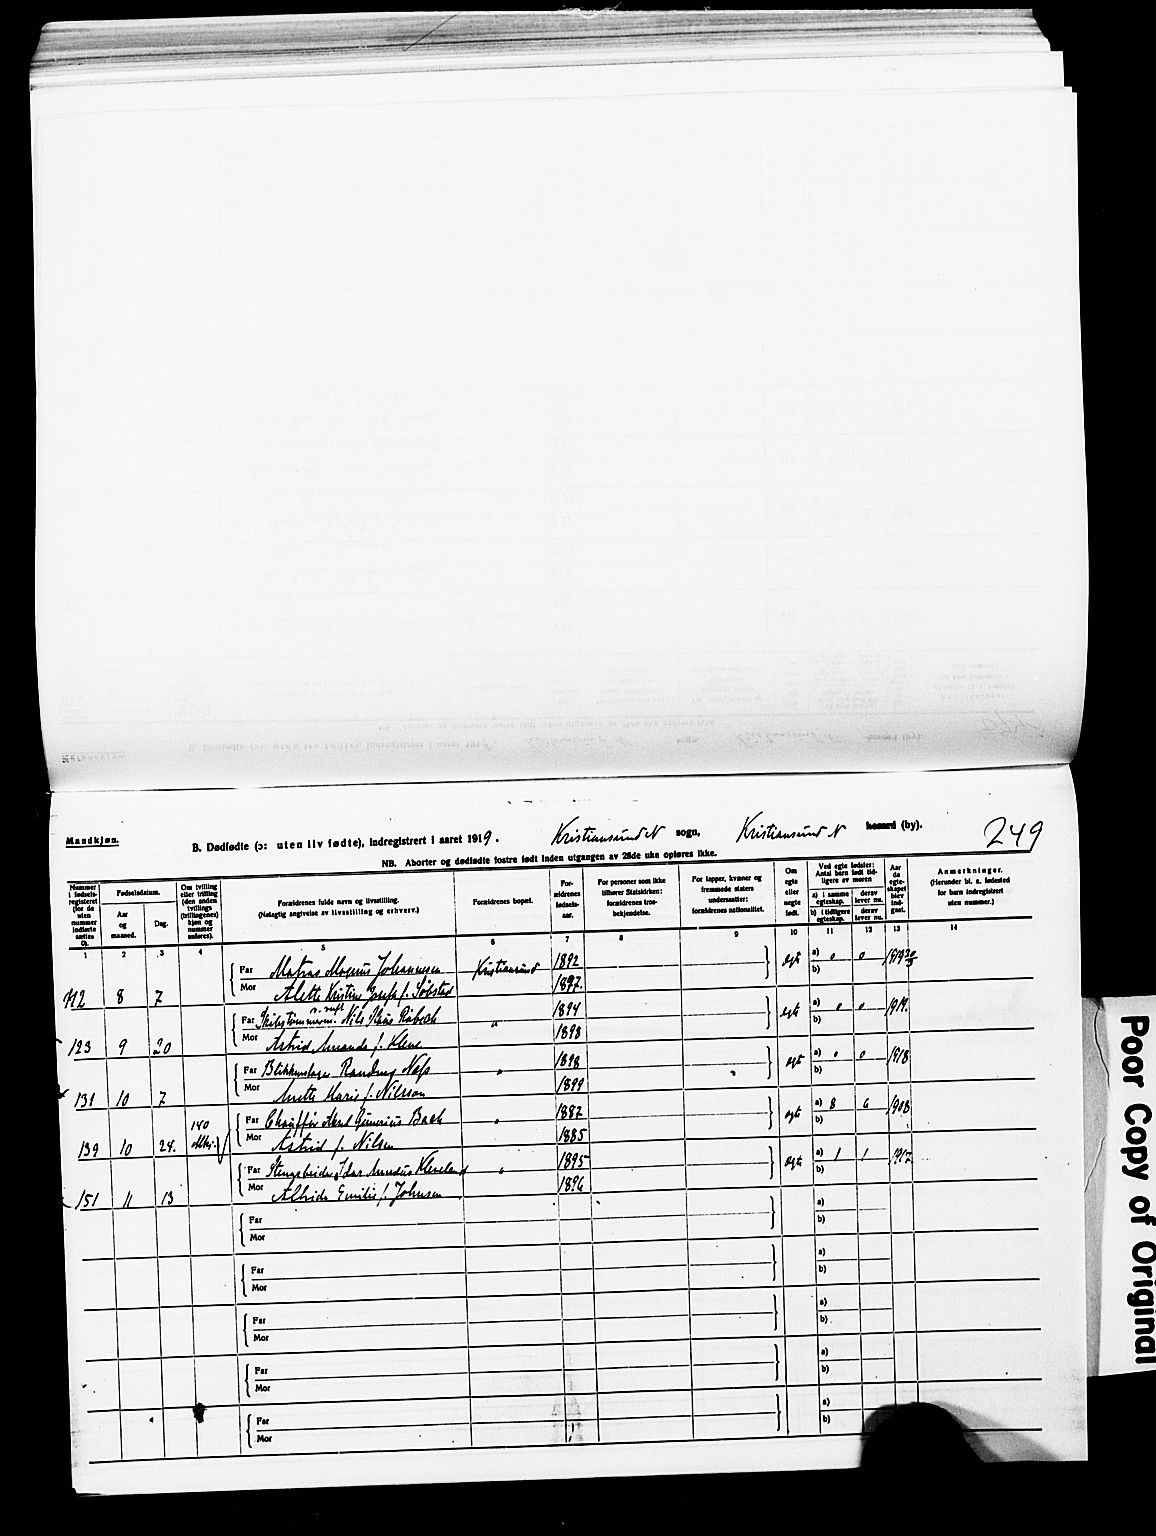 Mandkjøn.
B. Dødfødte (ɔ: uten liv fødte), indregistrert i aaret 1919. Kristiansund N sogn, Kristiansund N herred (by). 249
NB. Aborter og dødfødte fostre født inden utgangen av 28de uke opføres ikke.
Nummer i fødselsregisteret (for de uten nummer indførte sættes 0).
Fødselsdatum.
Aar og maaned.
Dag.
Om tvilling eller trilling (den anden tvillings (trillingenes) kjøn og nummer anføres).
Forældrenes fulde navn og livsstilling.
(Nøiagtig angivelse av livsstilling og erhverv.)
Forældrenes bopæl.
Forældrenes fødselsaar.
For personer som ikke tilhører Statskirken: forældrenes trosbekjendelse.
For lapper, kvæner og fremmede staters undersaatter: forældrenes nationalitet.
Om egte eller uegte født.
Ved egte fødsler: Antal barn født tidligere av moren
a) i samme egteskap.
derav lever nu.
b) i tidligere egteskap.
derav lever nu.
Aar da egteskapet blev indgaat.
Anmerkninger.
(Herunder bl. a. fødested for barn indregistrert uten nummer.)
1 2 3 4 5 6 7 8 9 10 11 12 13 14
Far Matros Magnus Johannesen Kristiansund 1892 egt a) 0 0 1919
112 8 7 Mor Alette Kristine Josefa f. Søbstad 1897. b)
Far Nils 1894 egte a) 0 0 1919.
123 9 20 Mor Astrid Amanda f. Kleve 1898 b)
Far Blikkenslager Næss " 1898 egt a) 0 0 1918
131 10 7 Mor Anette Marie f. Nilsson 1899 b)
Far Chauffør Bach " 1887 egte a) 8 6 1908
139 10 24. 140 Mor Astrid f. Nilsen 1885 b)
Far Idar Kleveland " 1895 egte a) 1 1 1917
151 11 13 Mor Emilie f. Johnsen 1896 b)
Far a)
Mor b)
Far a)
Mor b)
Far a)
Mor b)
Far a)
Mor b)
Far a)
Mor b)
Poor Copy of Original